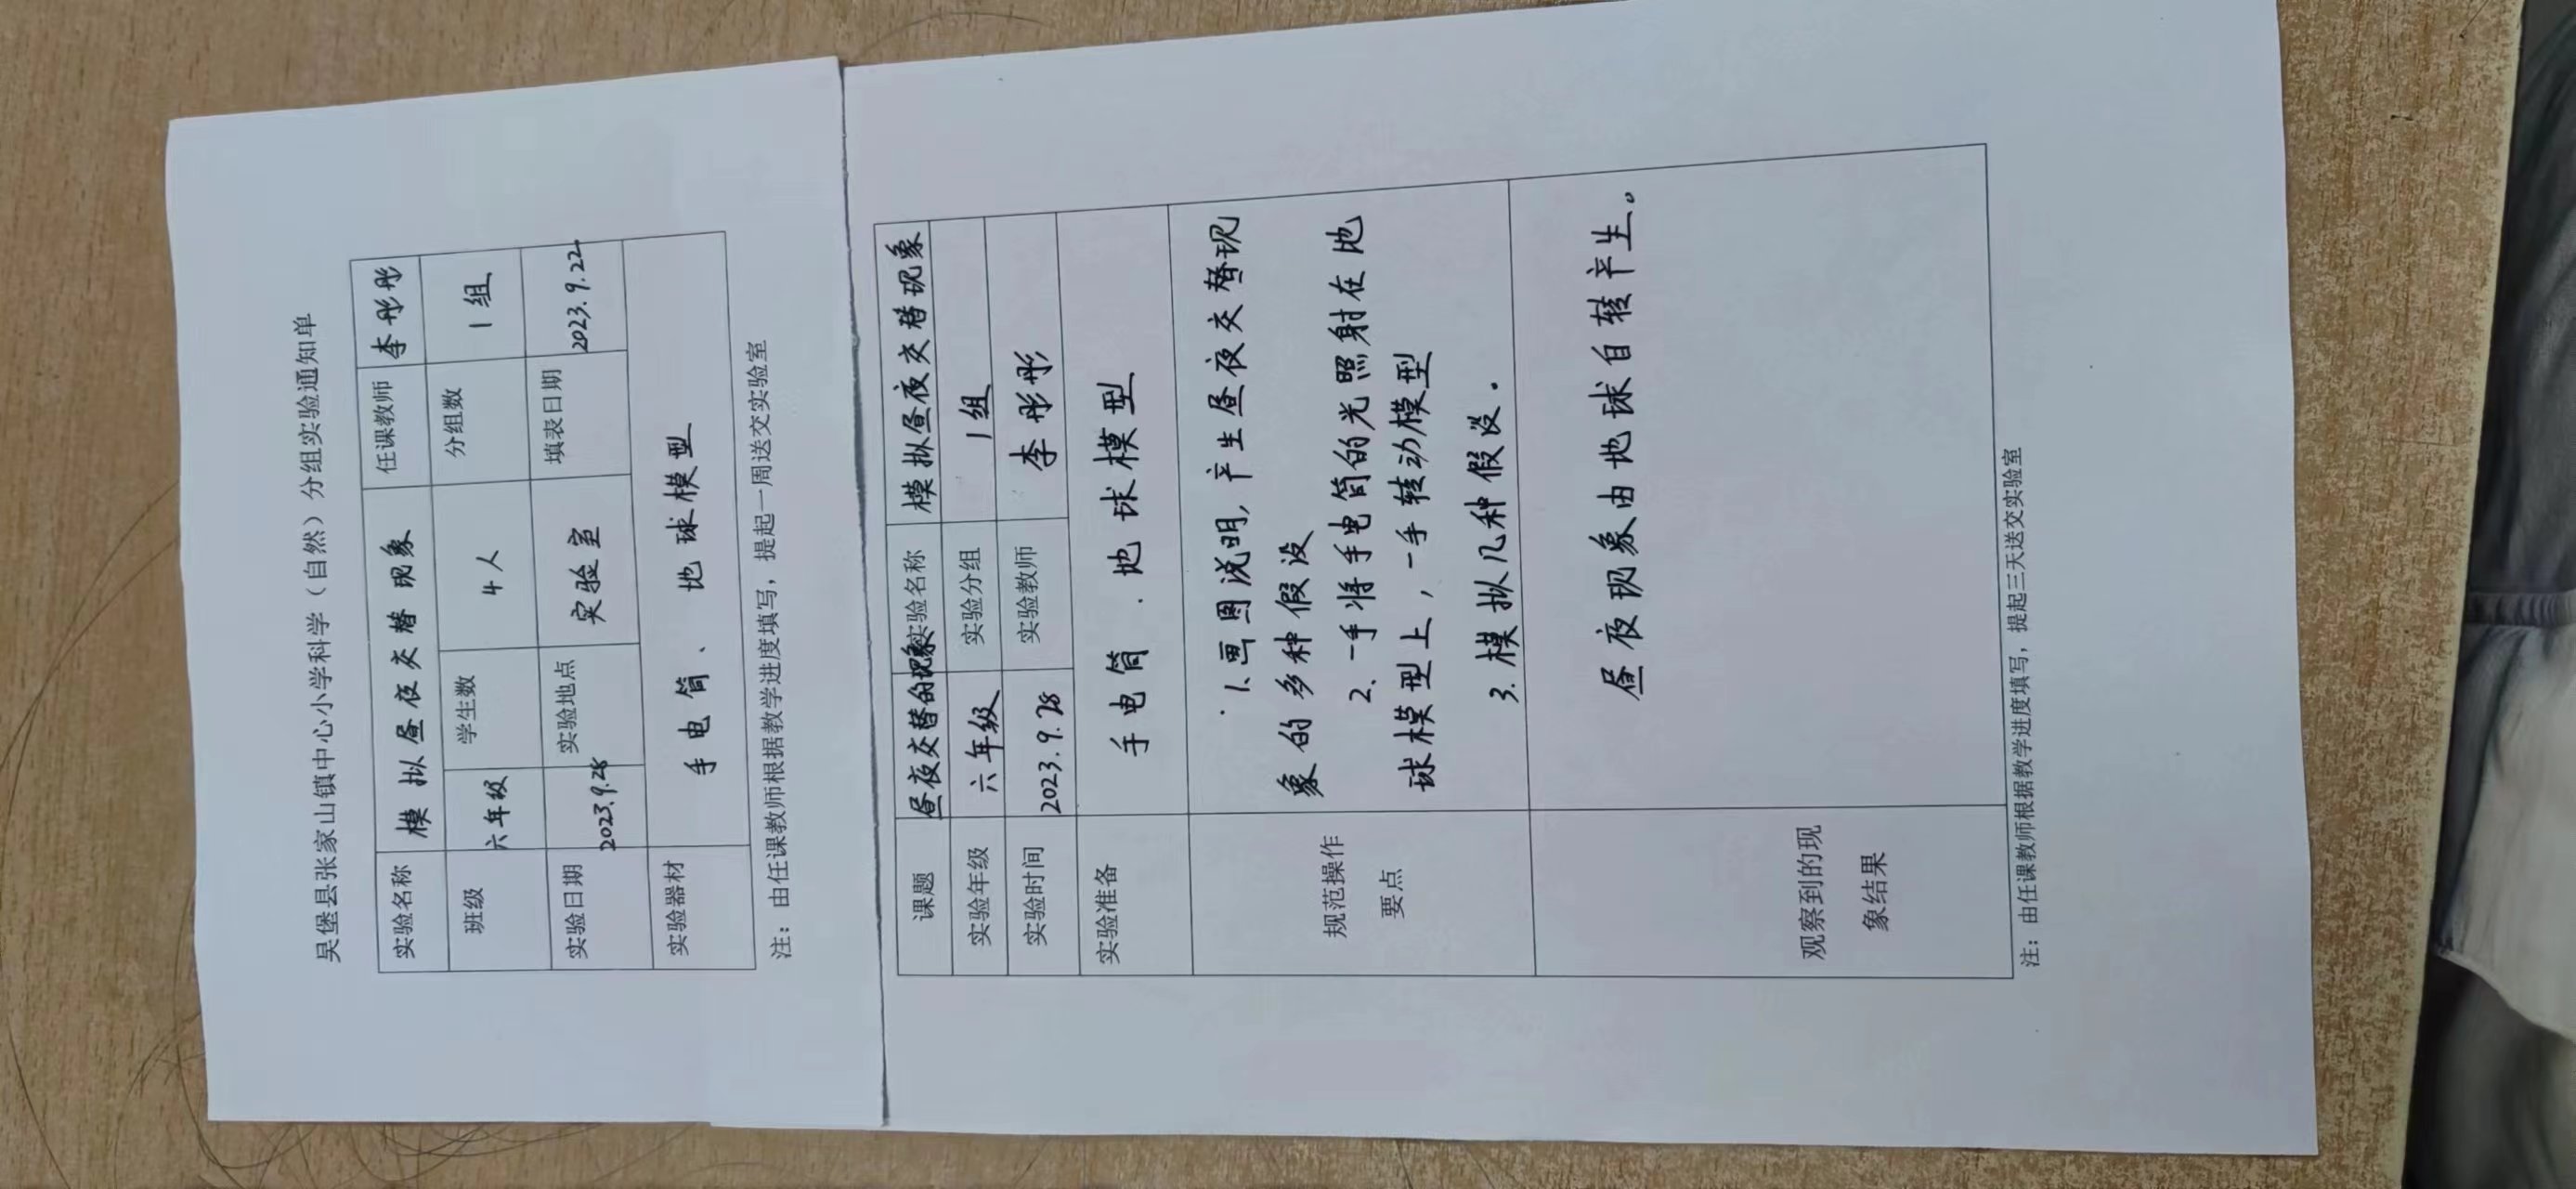 吴堡县张家山镇中心小学科学（自然）分组实验通知单
实验名称 模拟昼夜交替现象 任课教师 李彤彤
班级 六年级 学生数 4人 分组数 1组
实验日期 2023.9.28 实验地点 实验室 填表日期 2023.9.22
实验器材 手电筒、地球模型
注：由任课教师根据教学进度填写，提起一周送交实验室
课题 昼夜交替的现象 实验名称 模拟昼夜交替现象
实验年级 六年级 实验分组 1组
实验时间 2023.9.28 实验教师 李彤彤
实验准备 手电筒．地球模型
规范操作
要点
1、画图说明，产生昼夜交替现
象的多种假设
2、一手将手电筒的光照射在地
球模型上，一手转动模型
3.模拟几种假设．
观察到的现
象结果
昼夜现象由地球自转产生。
注：由任课教师根据教学进度填写，提起三天送交实验室